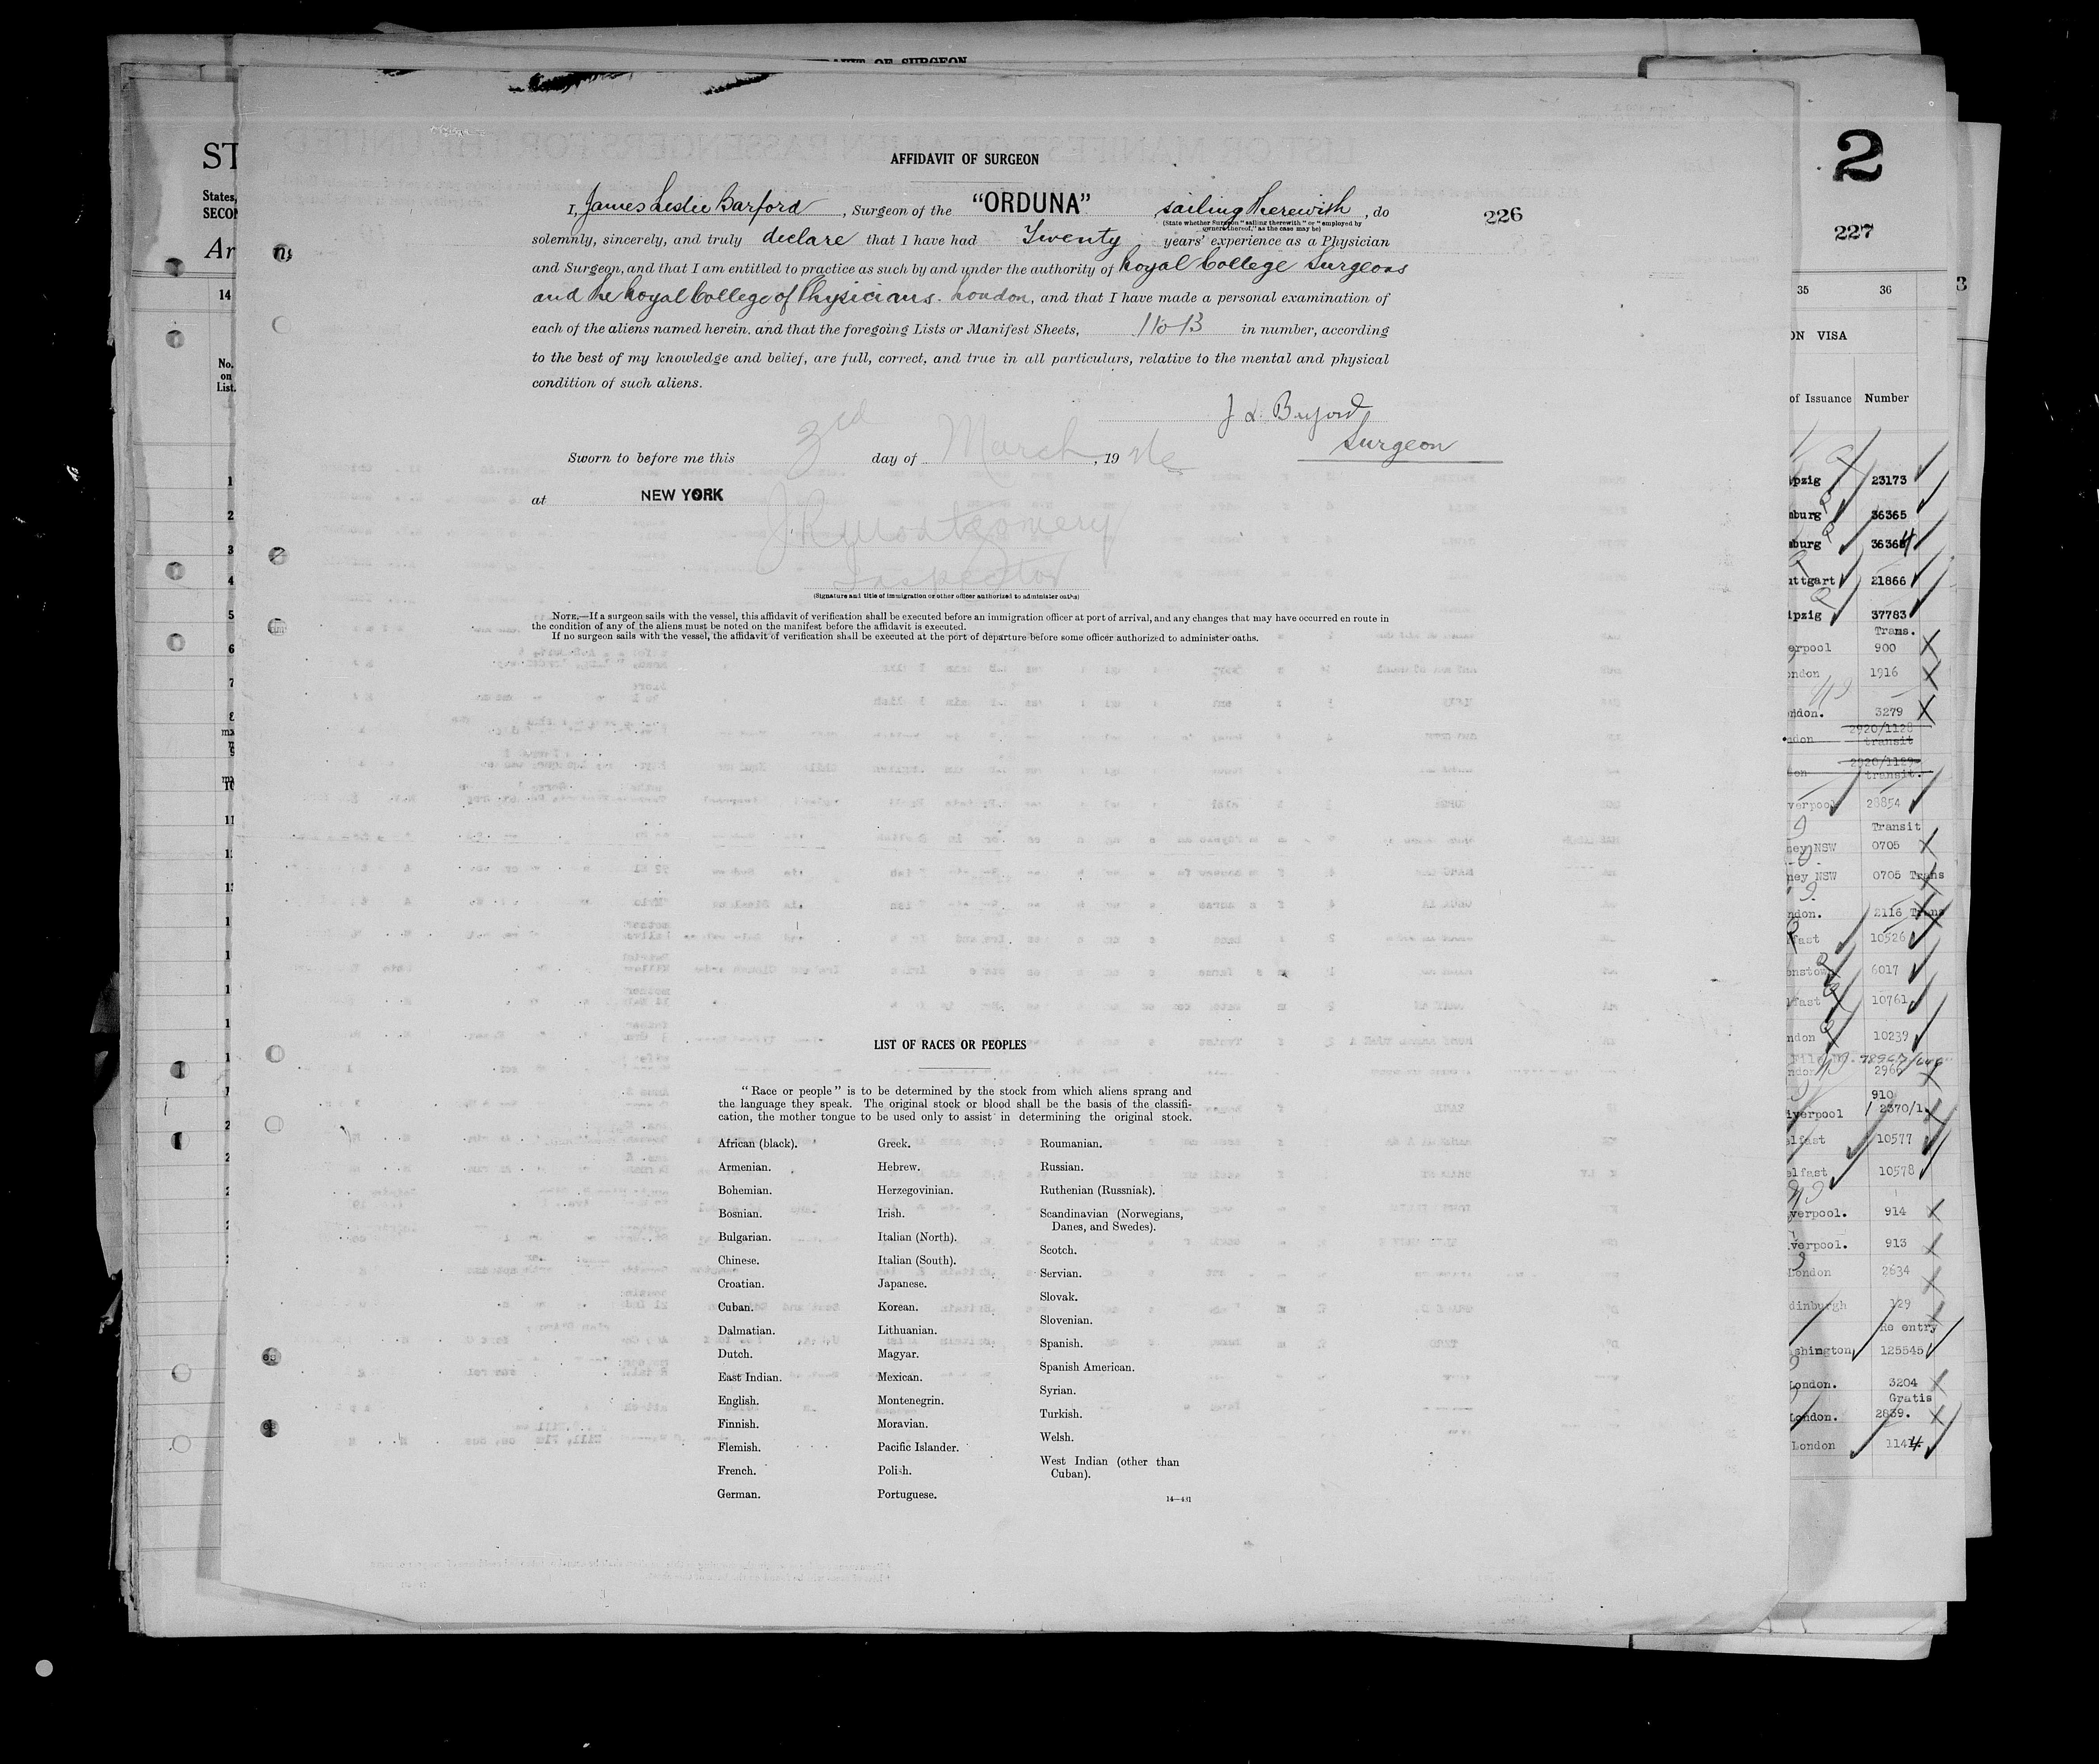 AFFIDAVIT OF SURGEON
I, James Leslie Barford, Surgeon of the "ORDUNA" sailing therewith, do
(State whether Surgeon "sailing therewith" or "employed by
owners thereof," as the case may be)
226
solemnly, sincerely, and truly declare that I have had Twenty years' experience as a Physician
and Surgeon, and that I am entitled to practice as such by and under the authority of Royal College Surgeons
and the Royal College of Physicians. London, and that I have made a personal examination of
each of the aliens named herein, and that the foregoing Lists or Manifest Sheets, 1 to 13 in number, according
to the best of my knowledge and belief, are full, correct, and true in all particulars, relative to the mental and physical
condition of such aliens.
J L Barford
Surgeon
Sworn to before me this 3rd day of March, 19
at NEW YORK
J R Montgomery
Inspector
(Signature and title of immigration or other officer authorized to administer oaths)
NOTE.—If a surgeon sails with the vessel, this affidavit of verification shall be executed before an immigration officer at port of arrival, and any changes that may have occurred en route in
the condition of any of the aliens must be noted on the manifest before the affidavit is executed.
If no surgeon sails with the vessel, the affidavit of verification shall be executed at the port of departure before some officer authorized to administer oaths.
LIST OF RACES OR PEOPLES
"Race or people" is to be determined by the stock from which aliens sprang and
the language they speak. The original stock or blood shall be the basis of the classifi-
cation, the mother tongue to be used only to assist in determining the original stock.
African (black).
Armenian.
Bohemian.
Bosnian.
Bulgarian.
Chinese.
Croatian.
Cuban.
Dalmatian.
Dutch.
East Indian.
English.
Finnish.
Flemish.
French.
German.
Greek.
Hebrew.
Herzegovinian.
Irish.
Italian (North).
Italian (South).
Japanese.
Korean.
Lithuanian.
Magyar.
Mexican.
Montenegrin.
Moravian.
Pacific Islander.
Polish.
Portuguese.
Roumanian.
Russian.
Ruthenian (Russniak).
Scandinavian (Norwegians,
Danes, and Swedes).
Scotch.
Servian.
Slovak.
Slovenian.
Spanish.
Spanish American.
Syrian.
Turkish.
Welsh.
West Indian (other than
Cuban).
14—431
ST
States,
SECON
Ar
14
No.
on
List.
1
2
3
4
5
6
7
2
227
35 36
ON VISA
of Issuance Number
ipzig 23173
mburg 36365
mburg 36364
uttgart 21866
ipzig 37783
Trans.
erpool 900
ondon 1916
ndon. 3279
ndon 2920/1128
transit
don 2920/1129
transit.
verpool 28854
Transit
ney NSW 0705
ney NSW 0705 Trans
ndon. 2116 Trans
fast 10526
enstow 6017
lfast 10761
ndon 10239
ndon 2966
910
iverpool 2370/1
elfast 10577
elfast 10578
verpool. 914
verpool. 913
London 2634
dinburgh 129
Re entry
shington 125545
London. 3204
Gratis
London. 2839.
London 11414